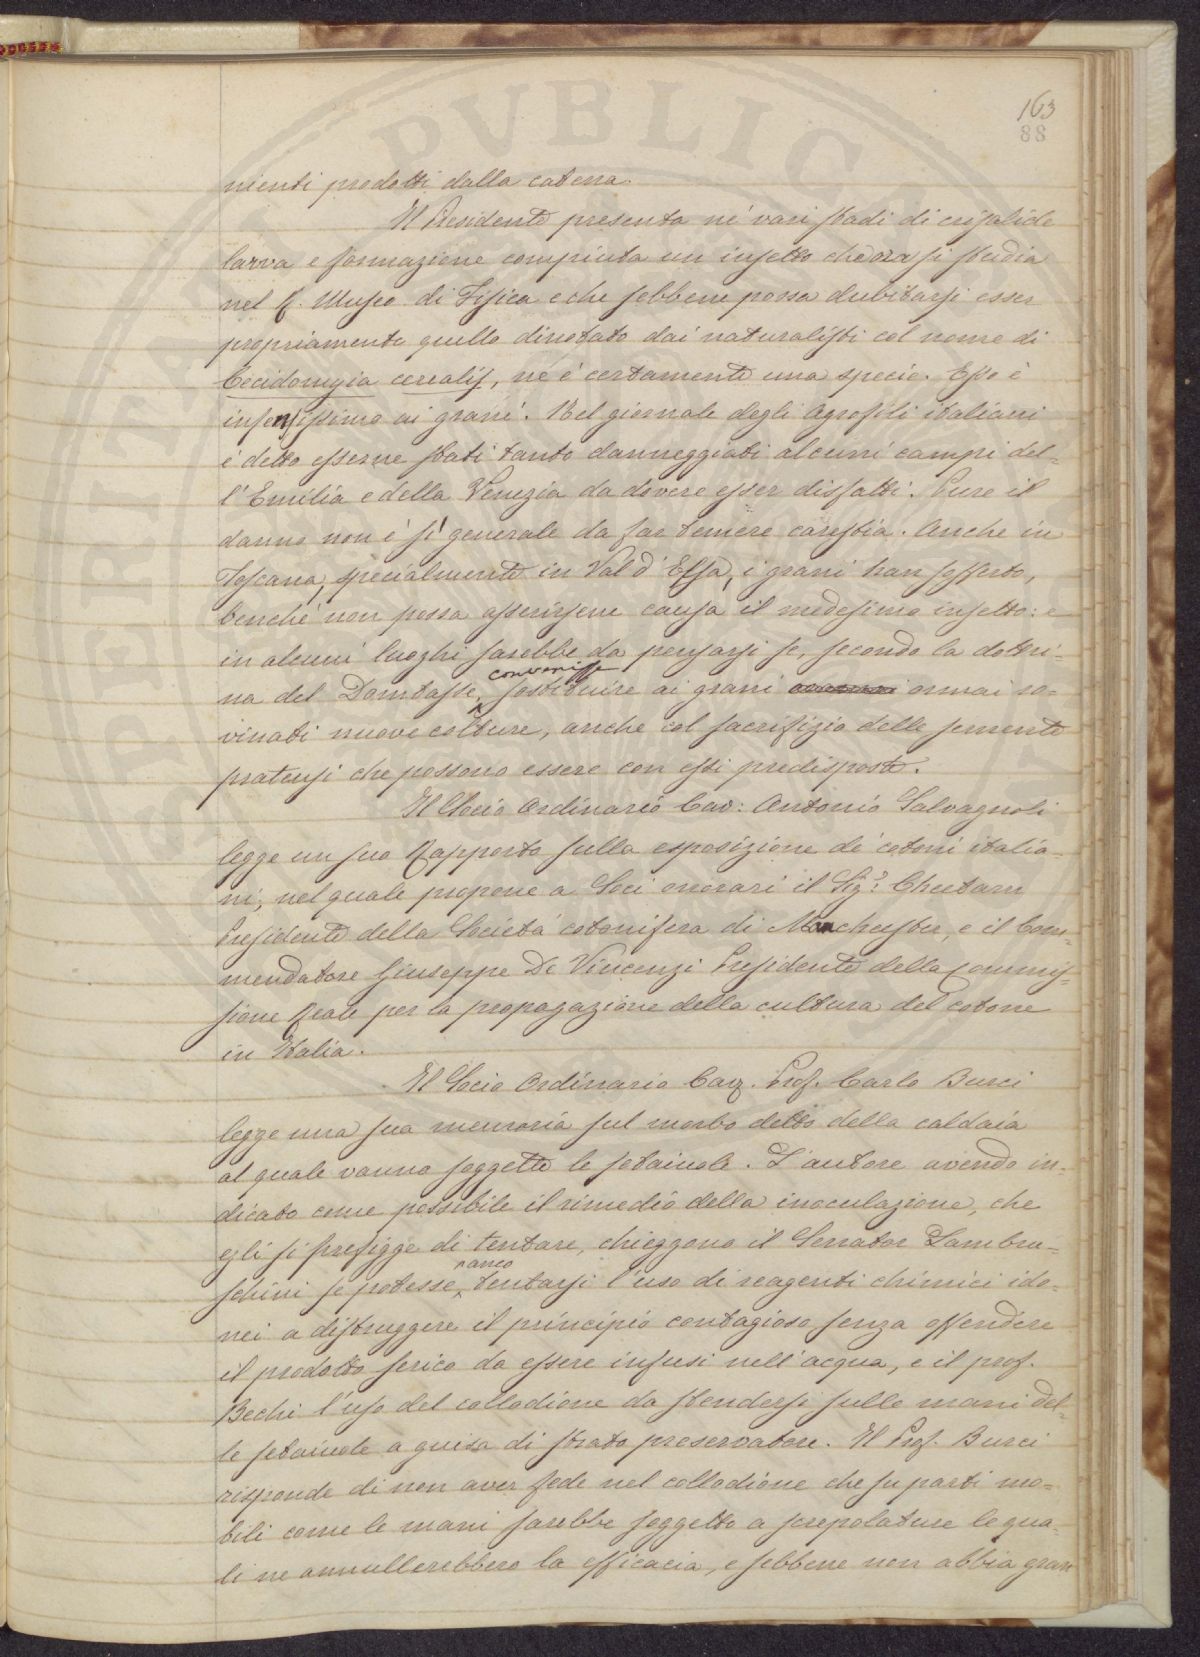 163
88
nienti prodotti dalla catena.
Il Presidente presenta ne' vari stadi di crisalide
larva e formazione compiuta un insetto che ora si studia
nel R. Museo di Fisica e che sebbene possa dubitarsi esser
propriamente quello dinotato dai naturalisti col nome di
Cecidomyia cerealis, ne è certamente una specie. Esso è
infensissimo ai grani. Nel giornale degli Agrofili italiani
è detto esserne stati tanto danneggiati alcuni campi del=
l'Emilia e della Venezia da dovere esser disfatti. Pure il
danno non è sì generale da far temere carestia. Anche in
Toscana, specialmente in Val d'Elsa, i grani han sofferto,
benchè non possa asserirsene causa il medesimo insetto: e
in alcuni luoghi sarebbe da pensarsi se, secondo la dottri=
na del Dombasle, convenisse sostituire ai grani ormai ro=
vinati nuove colture, anche col sacrifizio delle semente
pratensi che possono essere con essi predisposte.
Il Socio Ordinario Cav: Antonio Salvagnoli
legge un suo Rapporto sulla esposizione de' cotoni italia=
ni, nel quale propone a Soci onorari il Sig.r Cheetam
Presidente della Società cotonifera di Manchester, e il Com=
mendatore Giuseppe De Vincenzi Presidente della Commis=
sione Reale per la propagazione della cultura del cotone
in Italia.
Il Socio Ordinario Cav. Prof. Carlo Burci
legge una sua memoria sul morbo detto della caldaia
al quale vanno soggette le setaiuole. L'autore avendo in=
dicato come possibile il rimedio della inoculazione, che
egli si prefigge di tentare, chieggono il Senator Lambru=
schini se potesse anco tentarsi l'uso di reagenti chimici ido=
nei a distruggere il principio contagioso senza offendere
il prodotto serico da essere infusi nell'acqua, e il prof.
Bechi l'uso del collodione da stendersi sulle mani del=
le setaiuole a guisa di strato preservatore. Il Prof. Burci
risponde di non aver fede nel collodione che su parti mo=
bili come le mani sarebbe soggetto a screpolature le qua=
li ne annullerebbero la efficacia, e sebbene non abbia gran